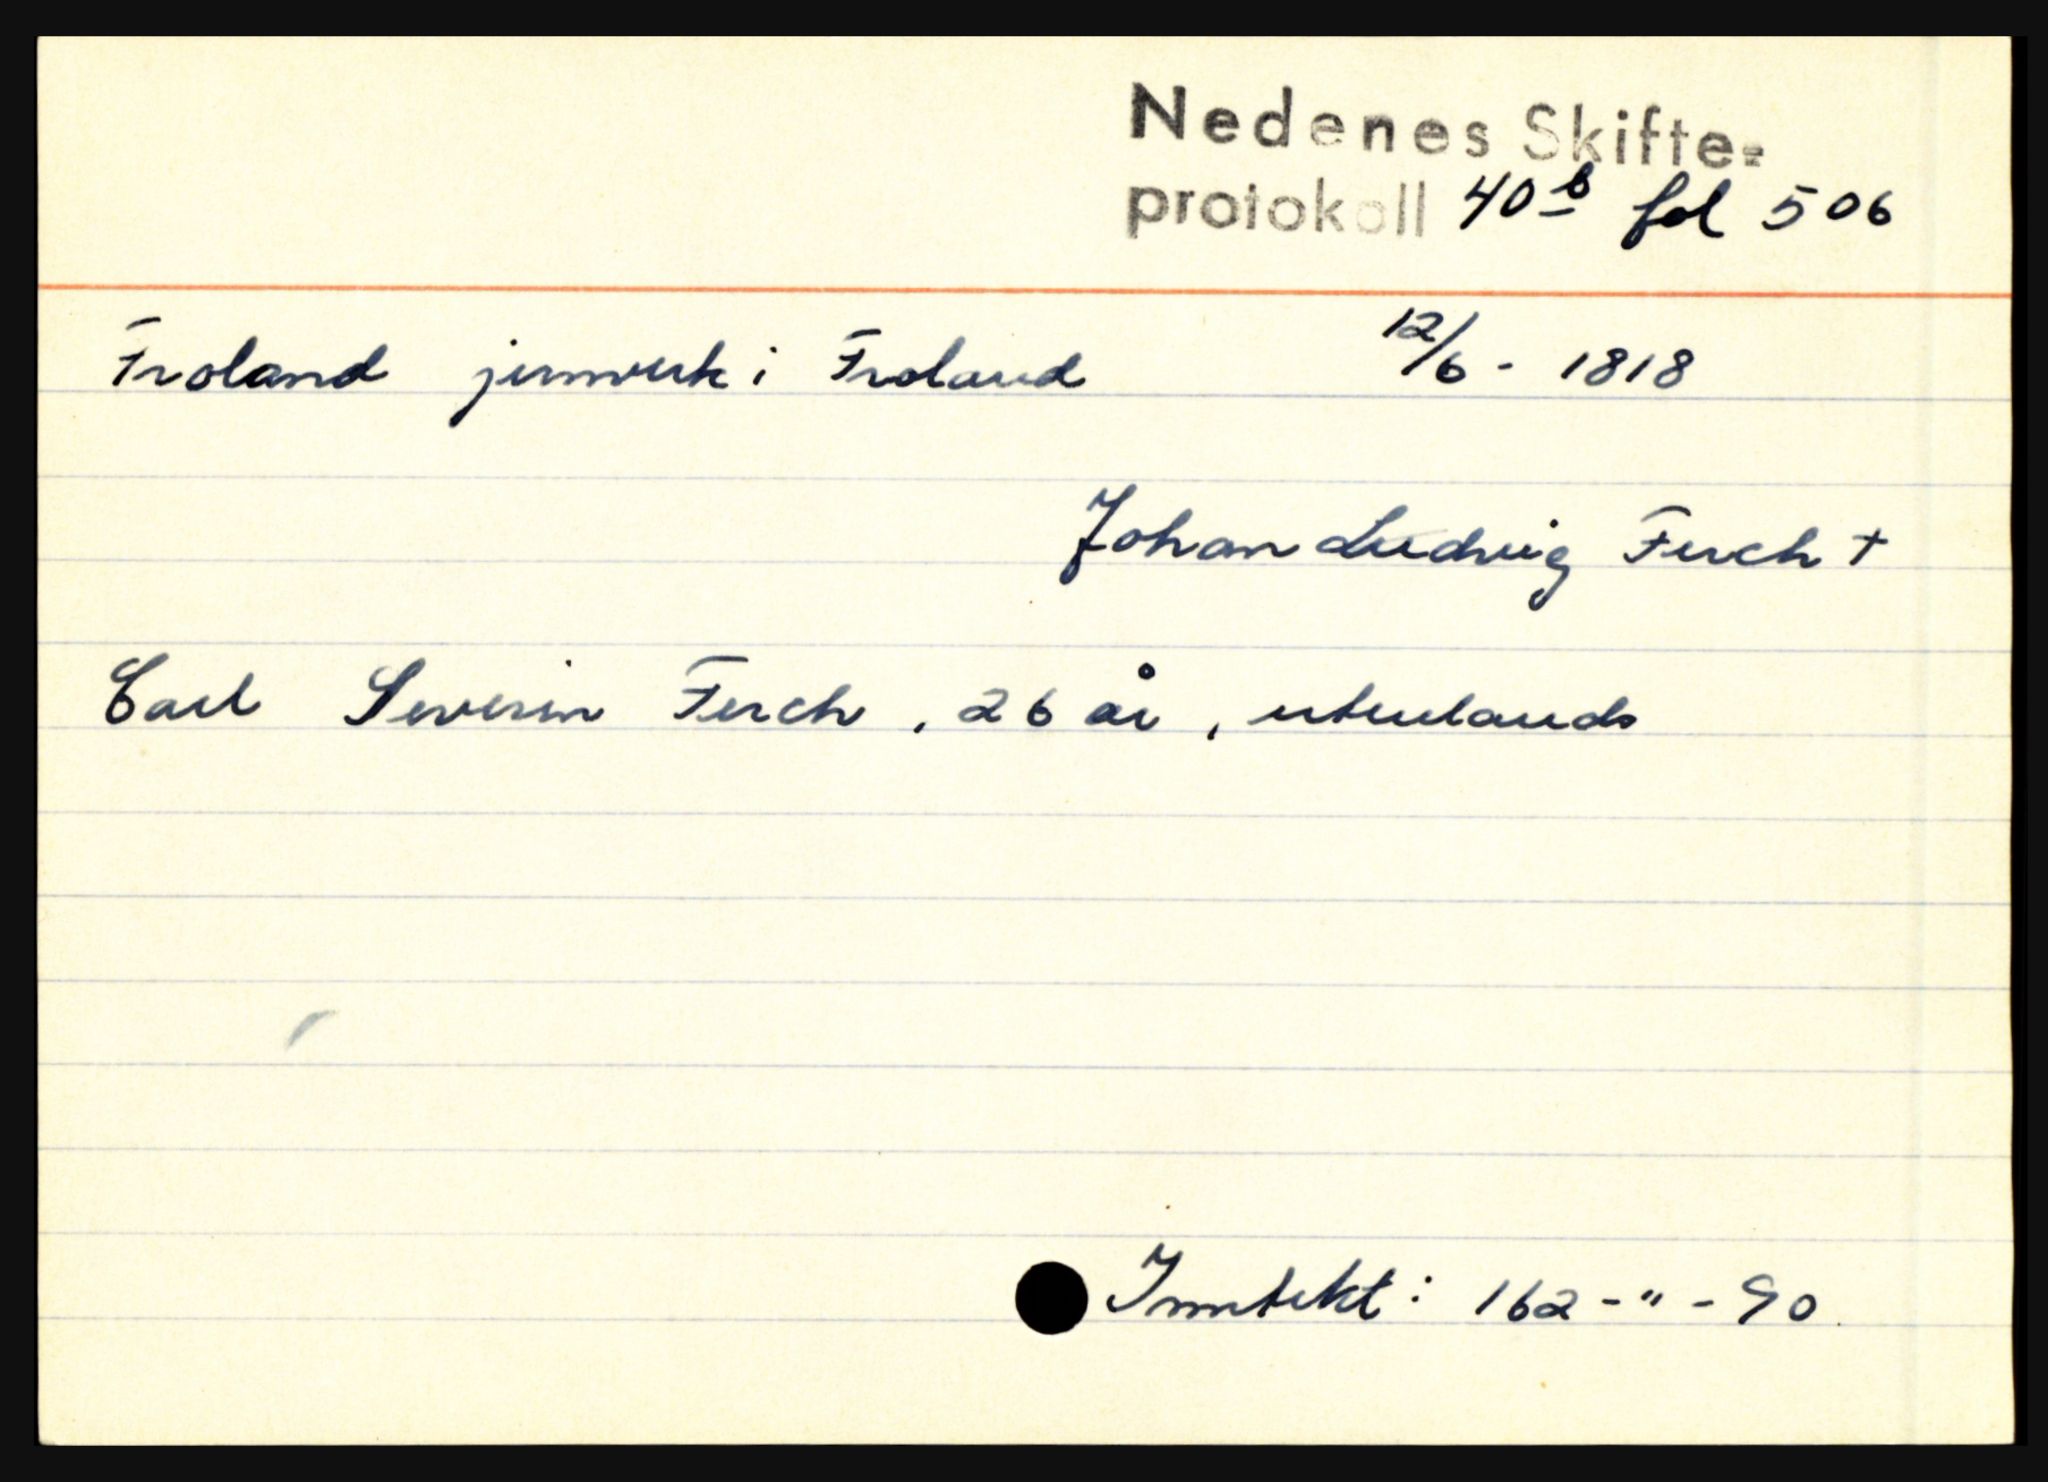 Nedenes Skifte-
protokoll 40b fol 506
Froland jernverk i Froland 12/6 - 1818
Johan Ludvig Ferch +
Carl Severin Ferch, 26 år, utenlands
Inntekt: 162 - " - 90